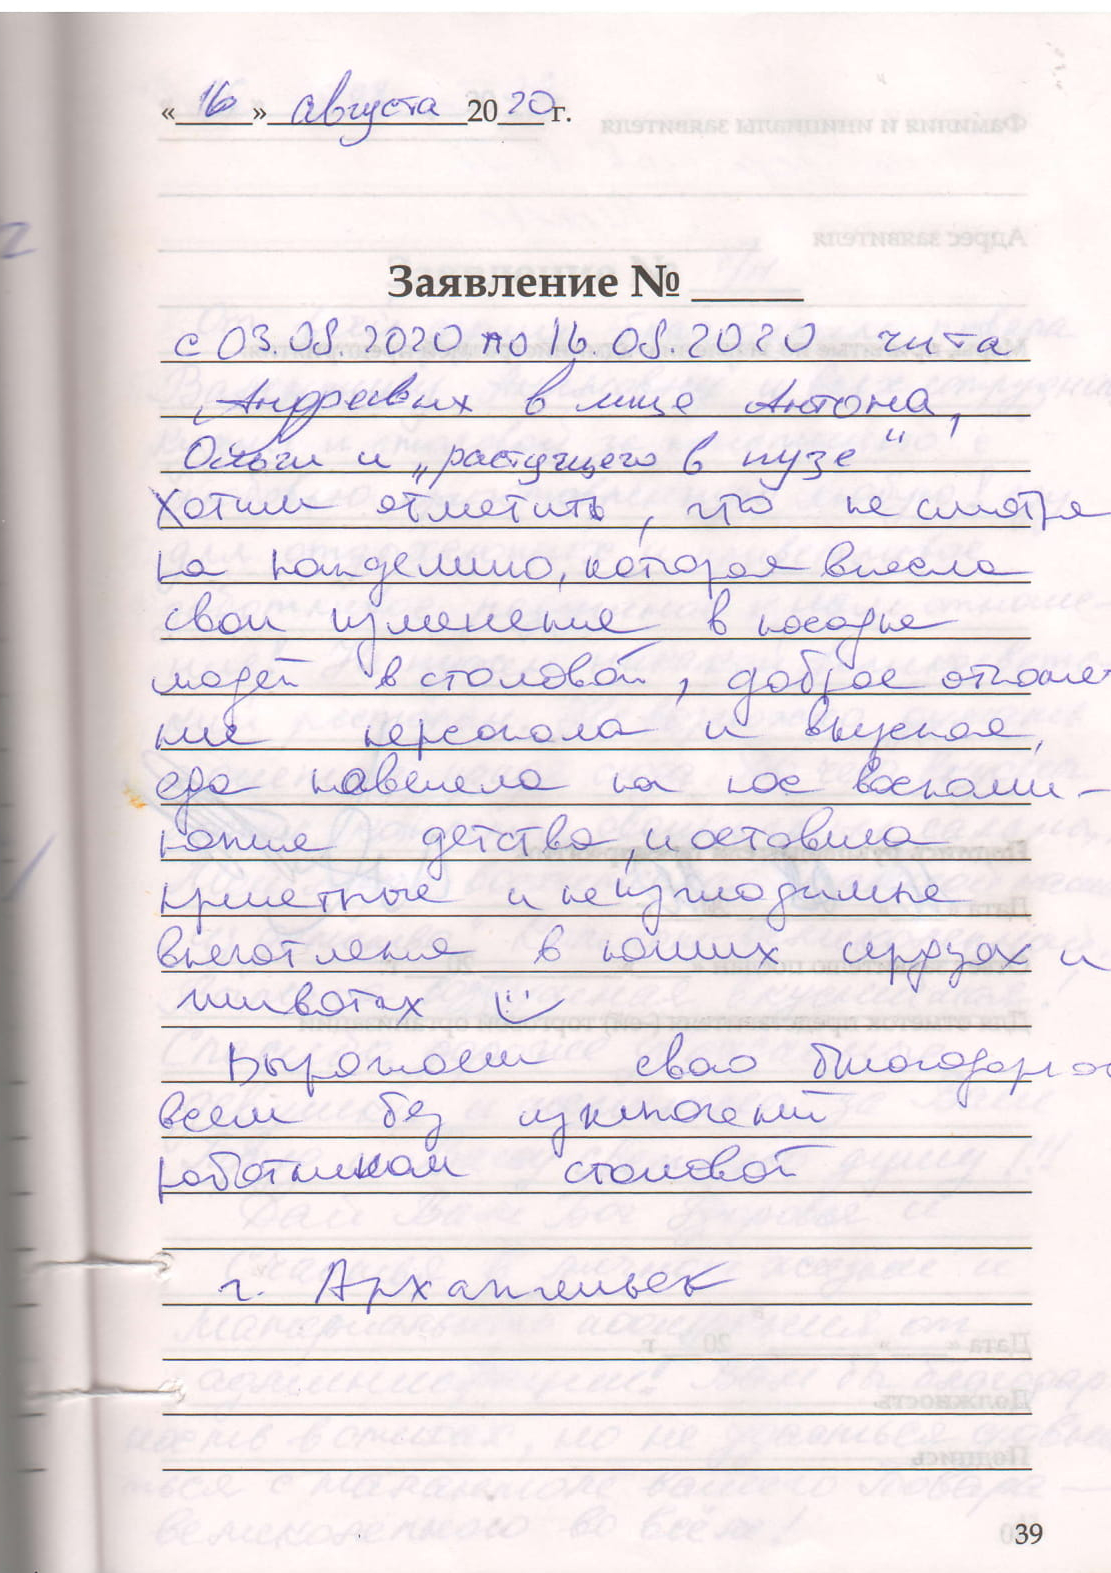 «16» августа 2020 г.
Заявление № ____
с 03.08.2020 по 16.08.2020 чита
Андреевых в лице Антона,
Ольги и „растущего в пузе“
Хотим отметить, что не смотря
на пандемию, которая внесла
свои изменение в посадке
людей в столовой, доброе отноше-
ние персонала и вкусная,
еда навеяла на нас воспоми-
нание детства, и оставила
приетные и неизгладимые
впечатления в наших сердцах и
животах
Выражаем свою благодарнос
всем без исключений
работникам столовой
г. Архангельск
39